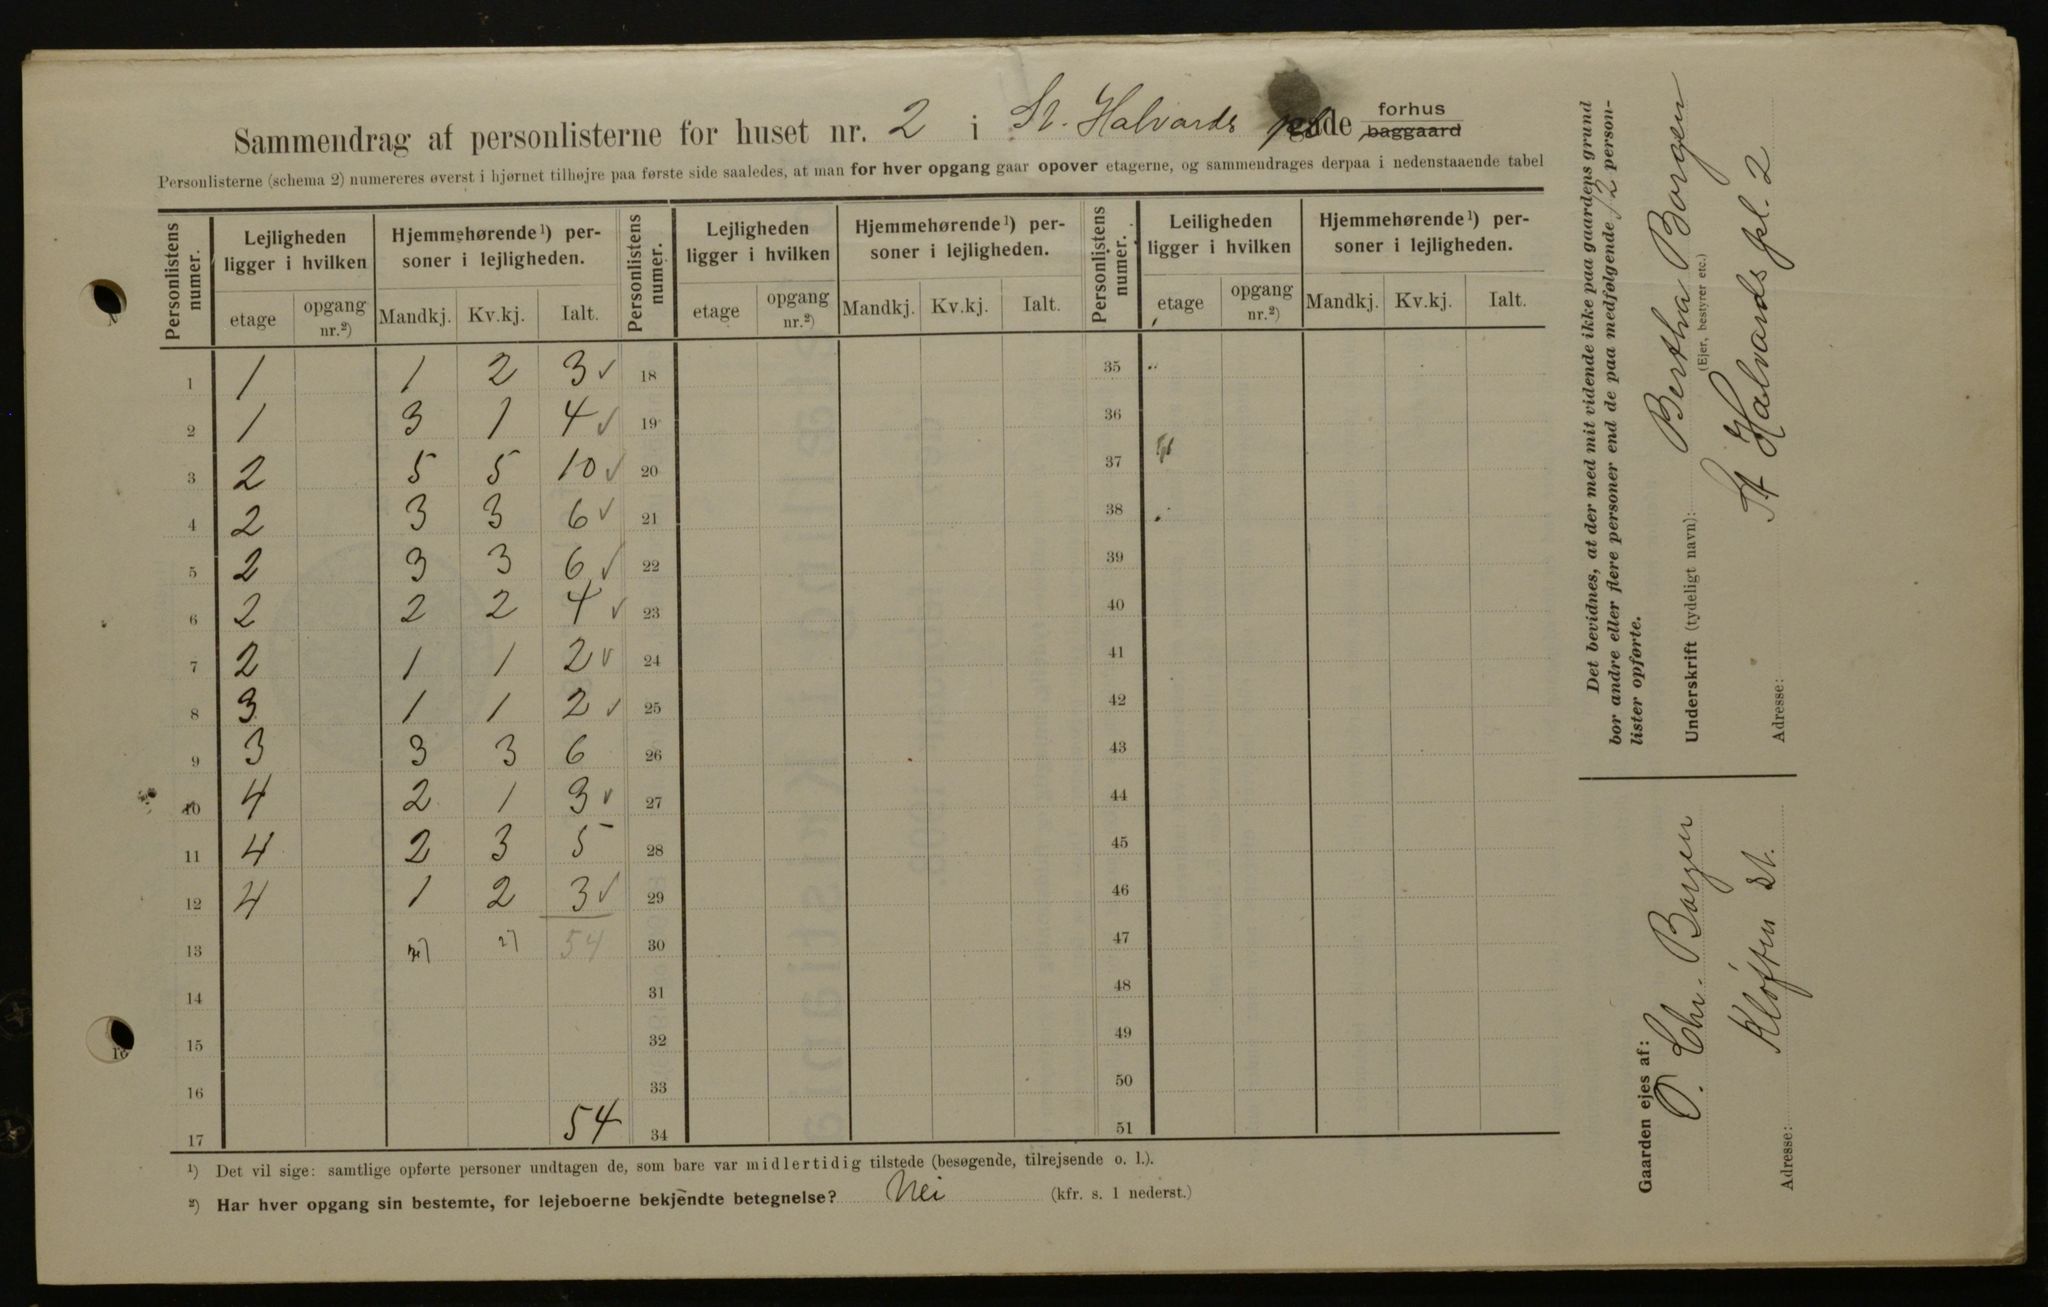 Sammendrag af personlisterne for huset nr. 2 i St. Halvards pl. gade forhus baggaard
Personlisterne (schema 2) numereres øverst i hjørnet tilhøjre paa første side saaledes, at man for hver opgang gaar opover etagerne, og sammendrages derpaa i nedenstaaende tabel
Personlistens numer. Lejligheden ligger i hvilken Hjemmehørende¹) personer i lejligheden. Personlistens numer. Lejligheden ligger i hvilken Hjemmehørende¹) personer i lejligheden. Personlistens numer. Leiligheden ligger i hvilken Hjemmehørende¹) personer i lejligheden.
etage opgang nr.²) Mandkj. Kv.kj. Ialt. etage opgang nr.²) Mandkj. Kv.kj. Ialt. etage opgang nr.²) Mandkj. Kv.kj. Ialt.
1 1 1 2 3 ✓ 18 35
2 1 3 1 4 ✓ 19 36
3 2 5 5 10 ✓ 20 37
4 2 3 3 6 ✓ 21 38
5 2 3 3 6 ✓ 22 39
6 2 2 2 4 ✓ 23 40
7 2 1 1 2 ✓ 24 41
8 3 1 1 2 ✓ 25 42
9 3 3 3 6 26 43
10 4 2 1 3 ✓ 27 44
11 4 2 3 5 28 45
12 4 1 2 3 ✓ 29 46
13 27 27 54 30 47
14 31 48
15 32 49
16 33 50
17 54 34 51
¹) Det vil sige: samtlige opførte personer undtagen de, som bare var midlertidig tilstede (besøgende, tilrejsende o. l.).
²) Har hver opgang sin bestemte, for lejeboerne bekjendte betegnelse? Nei (kfr. s. 1 nederst.)
Det bevidnes, at der med mit vidende ikke paa gaardens grund
bor andre eller flere personer end de paa medfølgende 12 person-
lister opførte.
Underskrift (tydeligt navn): Bertha Borgen
(Ejer, bestyrer etc.)
Adresse: St Halvards pl. 2
Gaarden ejes af:
O. Chr. Borgen
Adresse: Kløften St.